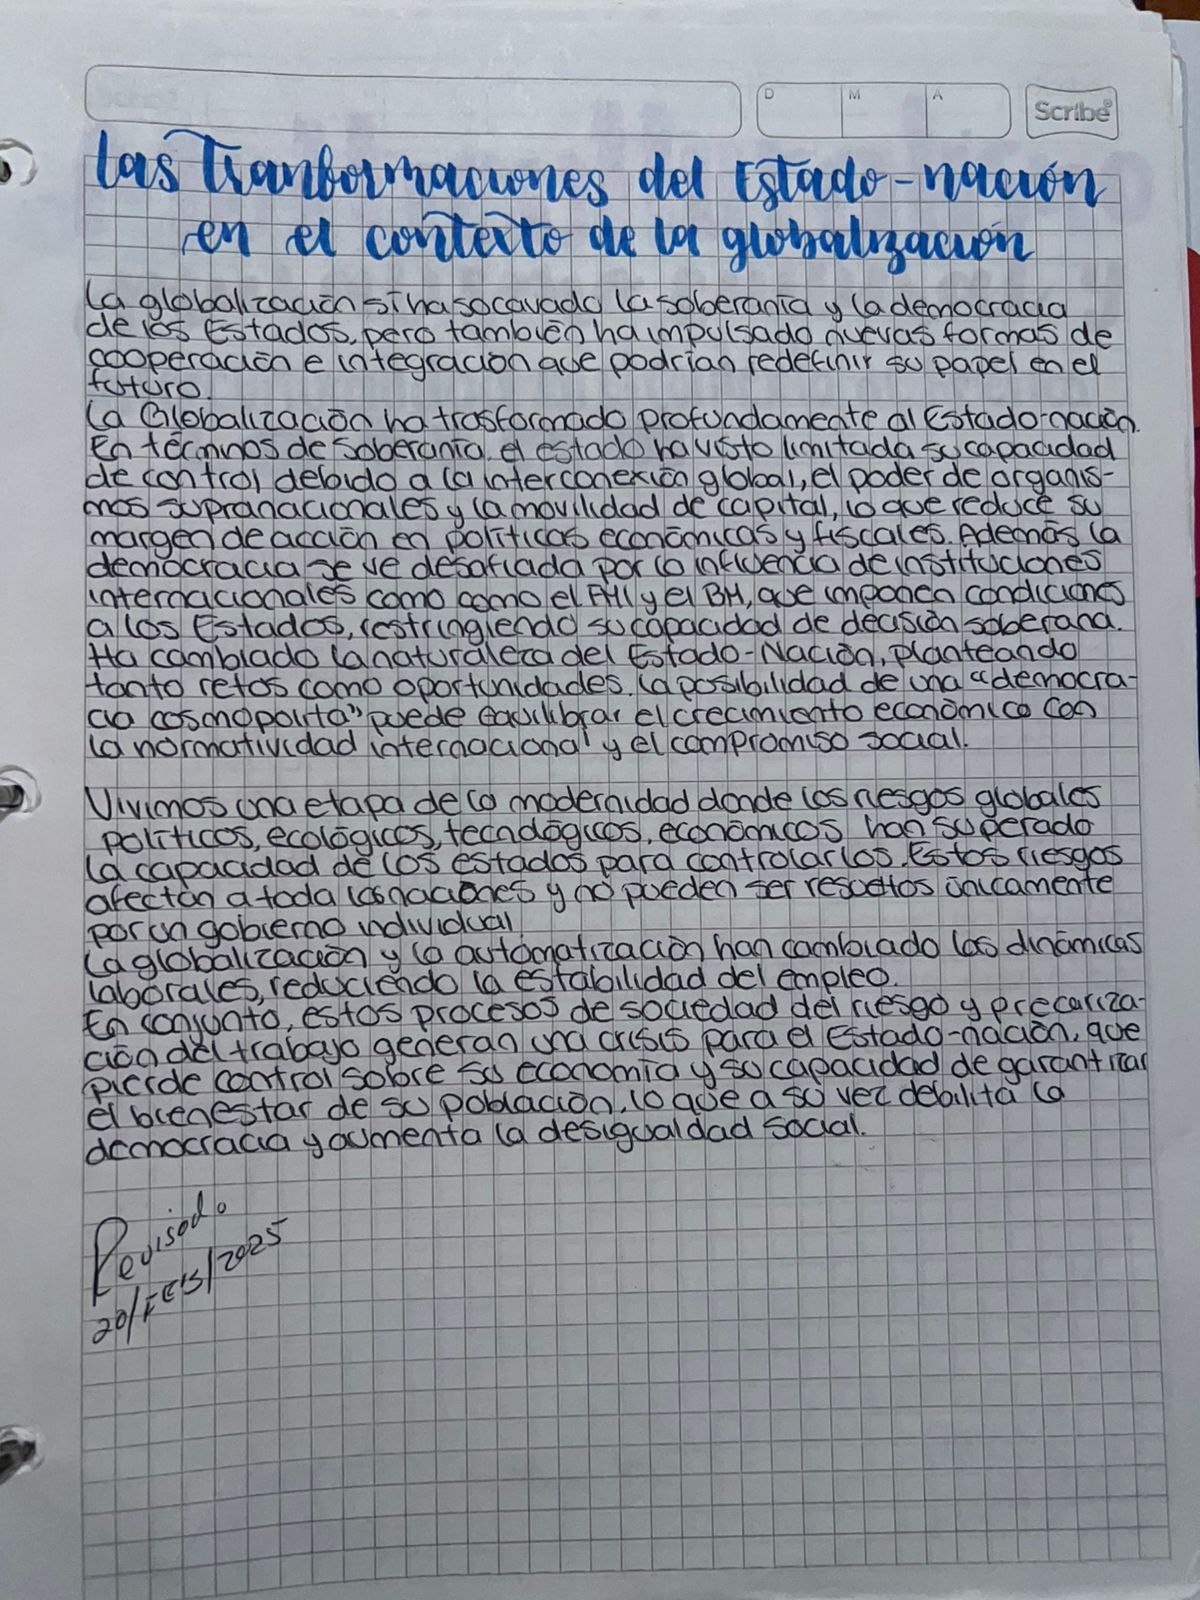 D M A Scribe
Las Tranformaciones del Estado-nación
en el contexto de la globalización
La globalización si ha socavado la soberanía y la democracia
de los Estados, pero también ha impulsado nuevas formas de
cooperación e integración que podrían redefinir su papel en el
futuro.
La Globalización ha trasformado profundamente al Estado-nación.
En términos de soberanía, el estado ha visto limitada su capacidad
de control debido a la interconexión global, el poder de organis-
mos supranacionales y la movilidad de capital, lo que reduce su
margen de acción en políticas económicas y fiscales. Además la
democracia se ve desafiada por la influencia de instituciones
internacionales como como el y el BM, que imponen condiciones
a los Estados, restringiendo su capacidad de decisión soberana.
Ha cambiado la naturaleza del Estado-Nación, planteando
tanto retos como oportunidades. La posibilidad de una "democra-
cia cosmopolita" puede equilibrar el crecimiento económico con
la normatividad internacional y el compromiso social.
Vivimos una etapa de la modernidad donde los riesgos globales
políticos, ecológicos, tecnológicos, económicos han superado
la capacidad de los estados para controlarlos. Estos riesgos
afectan a toda las naciones y no pueden ser resueltos únicamente
por un gobierno individual.
La globalización y la automatización han cambiado las dinámicas
laborales, reduciendo la estabilidad del empleo.
En conjunto, estos procesos de sociedad del riesgo y precariza-
ción del trabajo generan una crisis para el Estado-nación, que
pierde control sobre su economía y su capacidad de garantizar
el bienestar de su población, lo que a su vez debilita la
democracia y aumenta la desigualdad social.
Revisado
20/FEB/2025